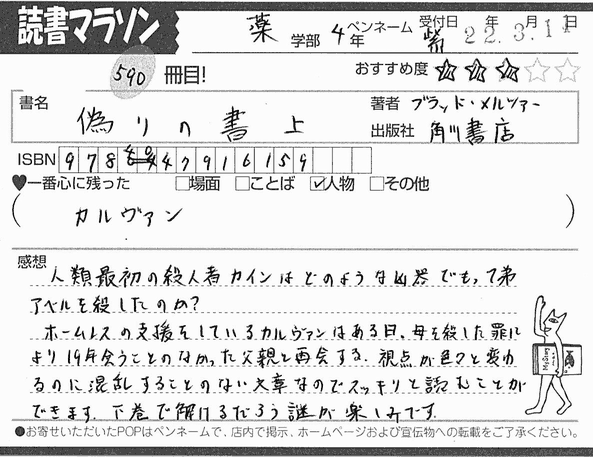 読書マラソン
薬 学部 4年 ペンネーム 紫 受付日 22年3月11日
590 冊目!
おすすめ度 ★★★☆☆
書名 偽りの書 上
著者 ブラッド・メルツァー
出版社 角川書店
ISBN 9784047916159
♥一番心に残った □場面 □ことば ☑人物 □その他
(カルヴァン)
感想
人類最初の殺人者カインはどのような凶器でもって弟
アベルを殺したのか?
ホームレスの支援をしているカルヴァンはある日、母を殺した罪に
より19年会うことのなかった父親と再会する。視点が色々と変わ
るのに混乱することのない文章なのでスッキリと読むことが
できます。下巻で解けるだろう謎が楽しみです。
●お寄せいただいたPOPはペンネームで、店内で掲示、ホームページおよび宣伝物への転載をご了承ください。